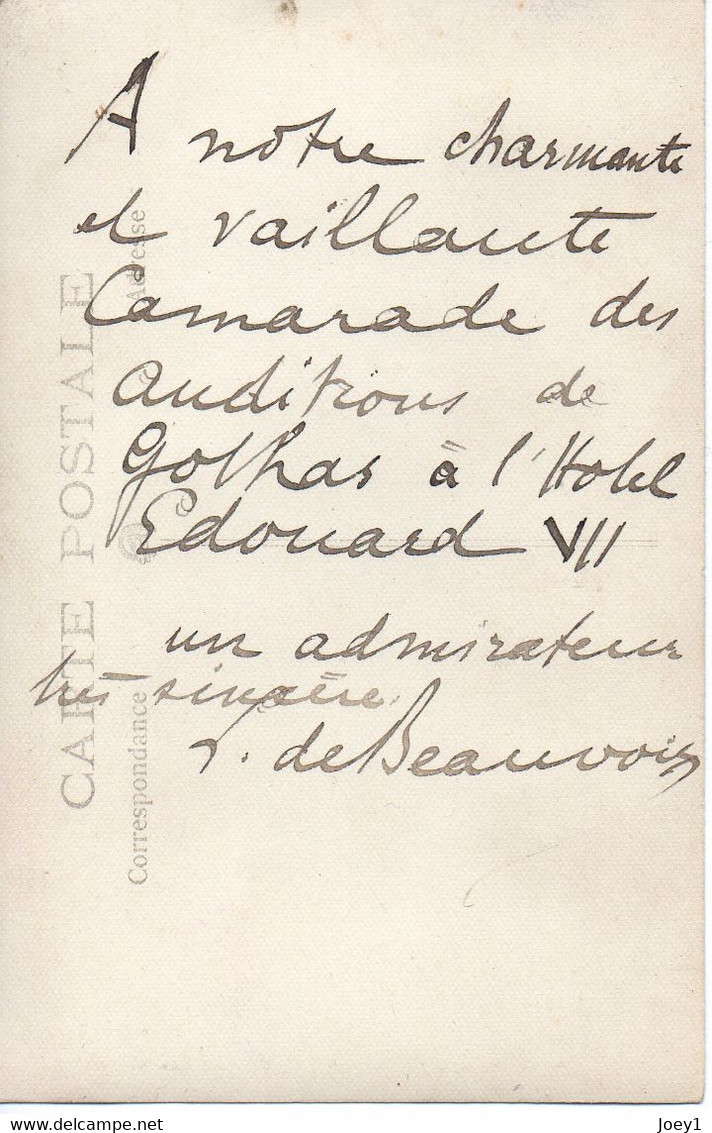 A notre charmante
et vaillante
Camarade des
auditions de
Golhas à l'Hotel
Edouard VII
un admirateur
très sincère.
de Beauvois
CARTE POSTALE
Correspondance
Adresse
delcampe.net
Joey1